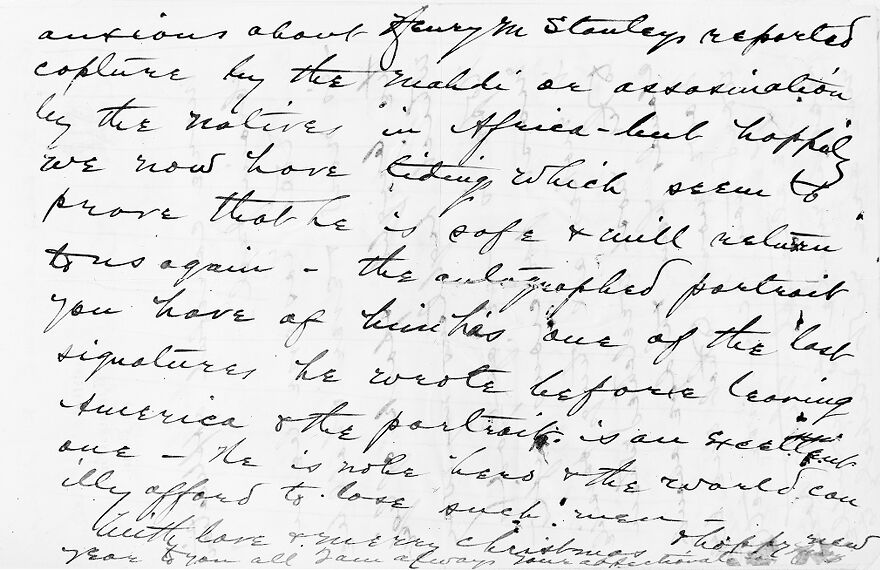 anxious about Henry M Stanleys reported
capture by the Mahdi or assasination
by the natives in Africa - but happily
we now have tidings which seem to
prove that he is safe & will return
to us again - the autographed portrait
you have of him has one of the last
signatures he wrote before leaving
America & the portrait is an excellent
one - He is noble hero & the world can
illy afford to lose such men -
With love & merry christmas & happy new
year to you all I am always your affectionate